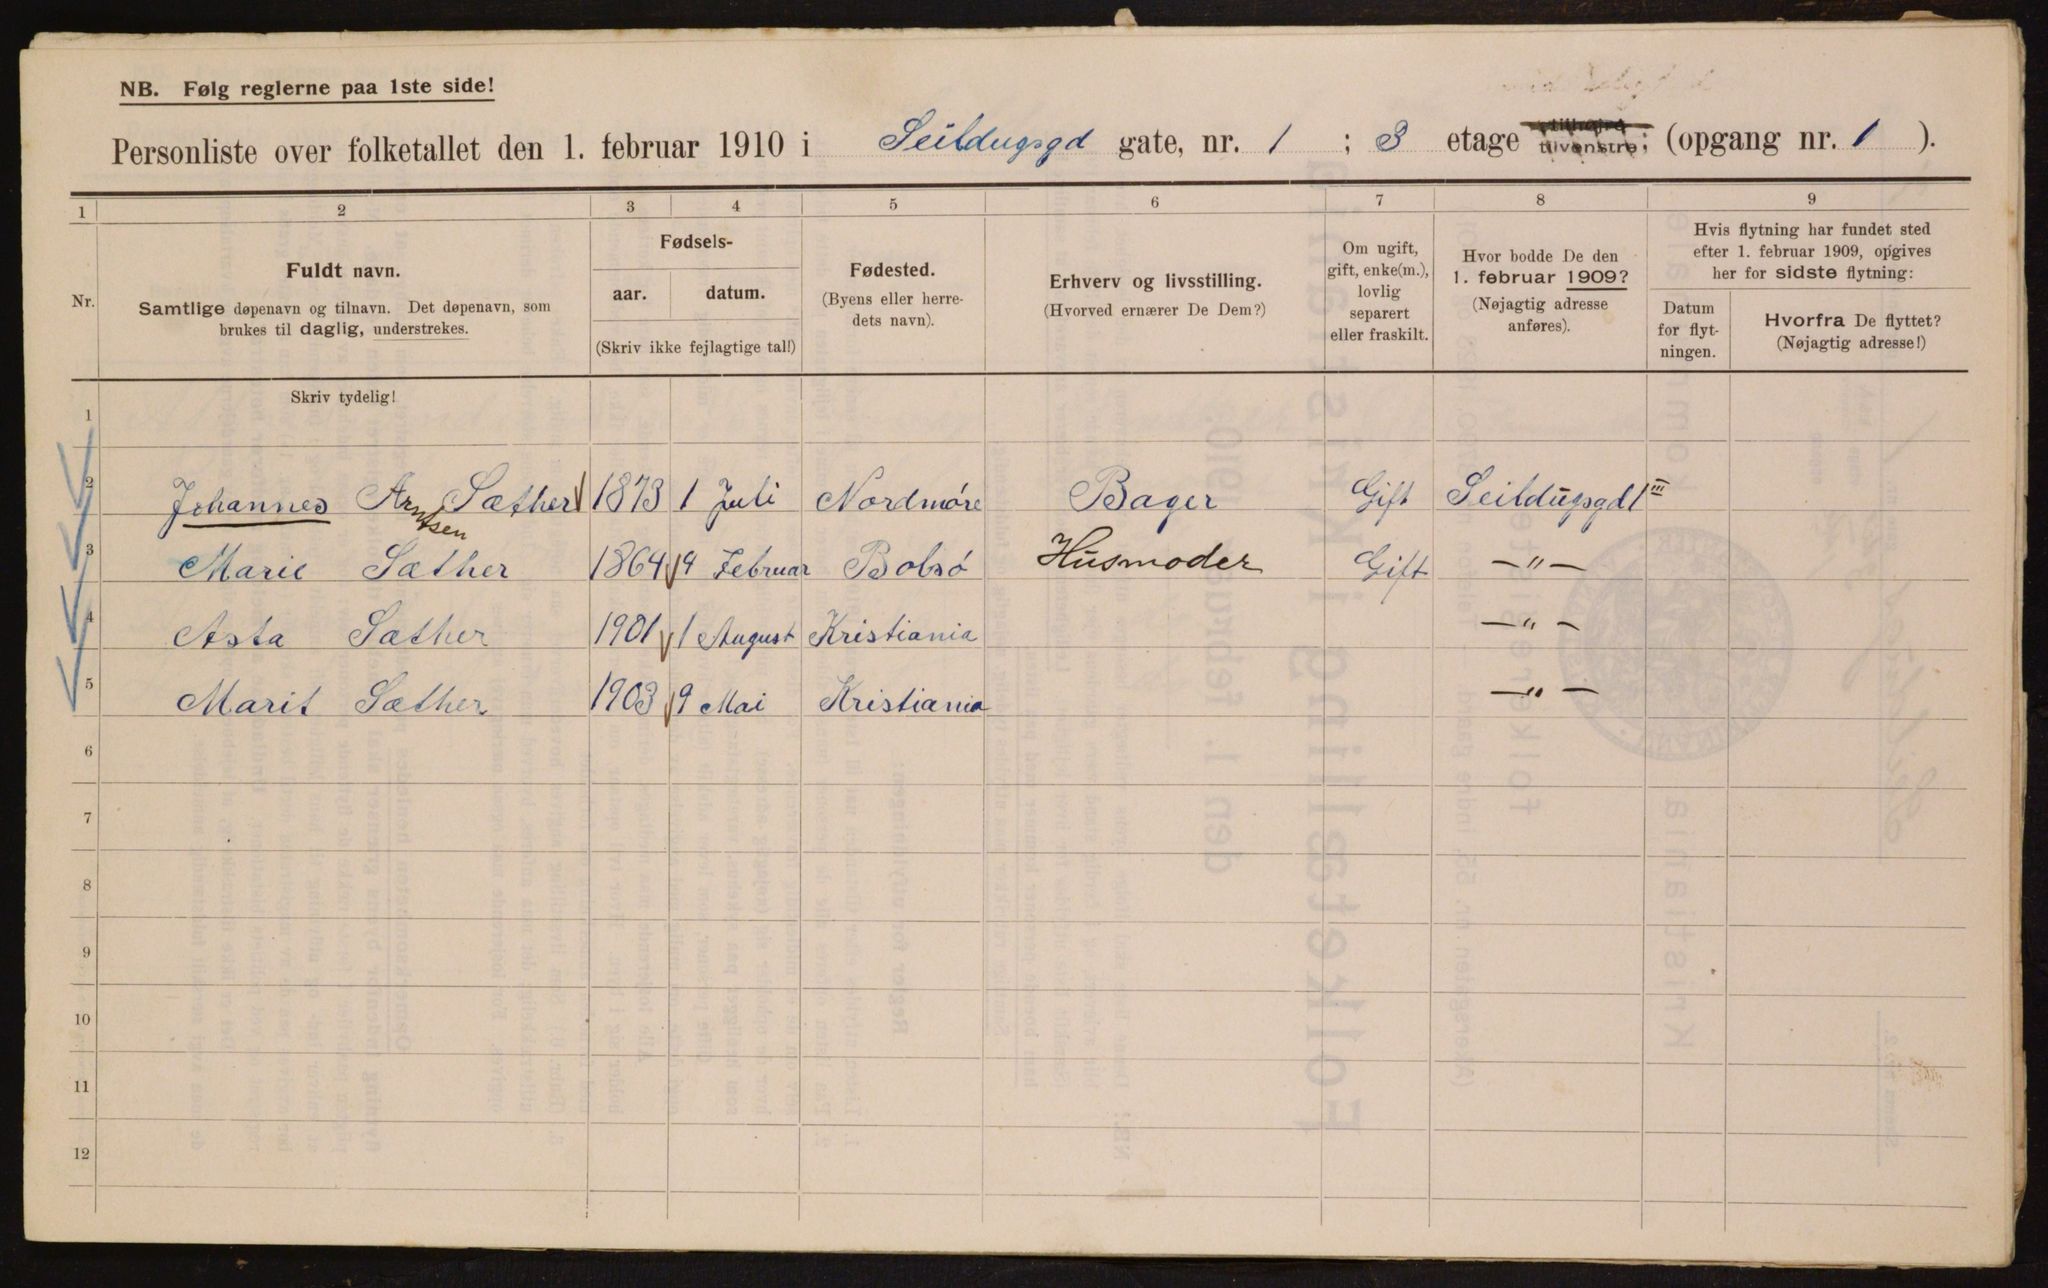 NB. Følg reglerne paa 1ste side!
Personliste over folketallet den 1. februar 1910 i Seildugsgd gate, nr. 1 ; 3 etage tilhøjre tilvenstre; (opgang nr. 1 ).
1 2 3 4 5 6 7 8 9
Nr.
Fuldt navn.
Samtlige døpenavn og tilnavn. Det døpenavn, som
brukes til daglig, understrekes.
Fødsels-
aar. datum.
(Skriv ikke fejlagtige tal!)
Fødested.
(Byens eller herre-
dets navn).
Erhverv og livsstilling.
(Hvorved ernærer De Dem?)
Om ugift,
gift, enke(m.),
lovlig
separert
eller fraskilt.
Hvor bodde De den
1. februar 1909?
(Nøjagtig adresse
anføres).
Hvis flytning har fundet sted
efter 1. februar 1909, opgives
her for sidste flytning:
Datum
for flyt-
ningen.
Hvorfra De flyttet?
(Nøjagtig adresse!)
Skriv tydelig!
1
2 Johannes Arntsen Sæther 1873 1 Juli Nordmøre Bager Gift Seildugsgd 1 III
3 Marie Sæther 1864 9 Februar Bolsø Husmoder Gift —"—
4 Asta Sæther 1901 1 August Kristiania —"—
5 Marit Sæther 1903 9 Mai Kristiania —"—
6
7
8
9
10
11
12